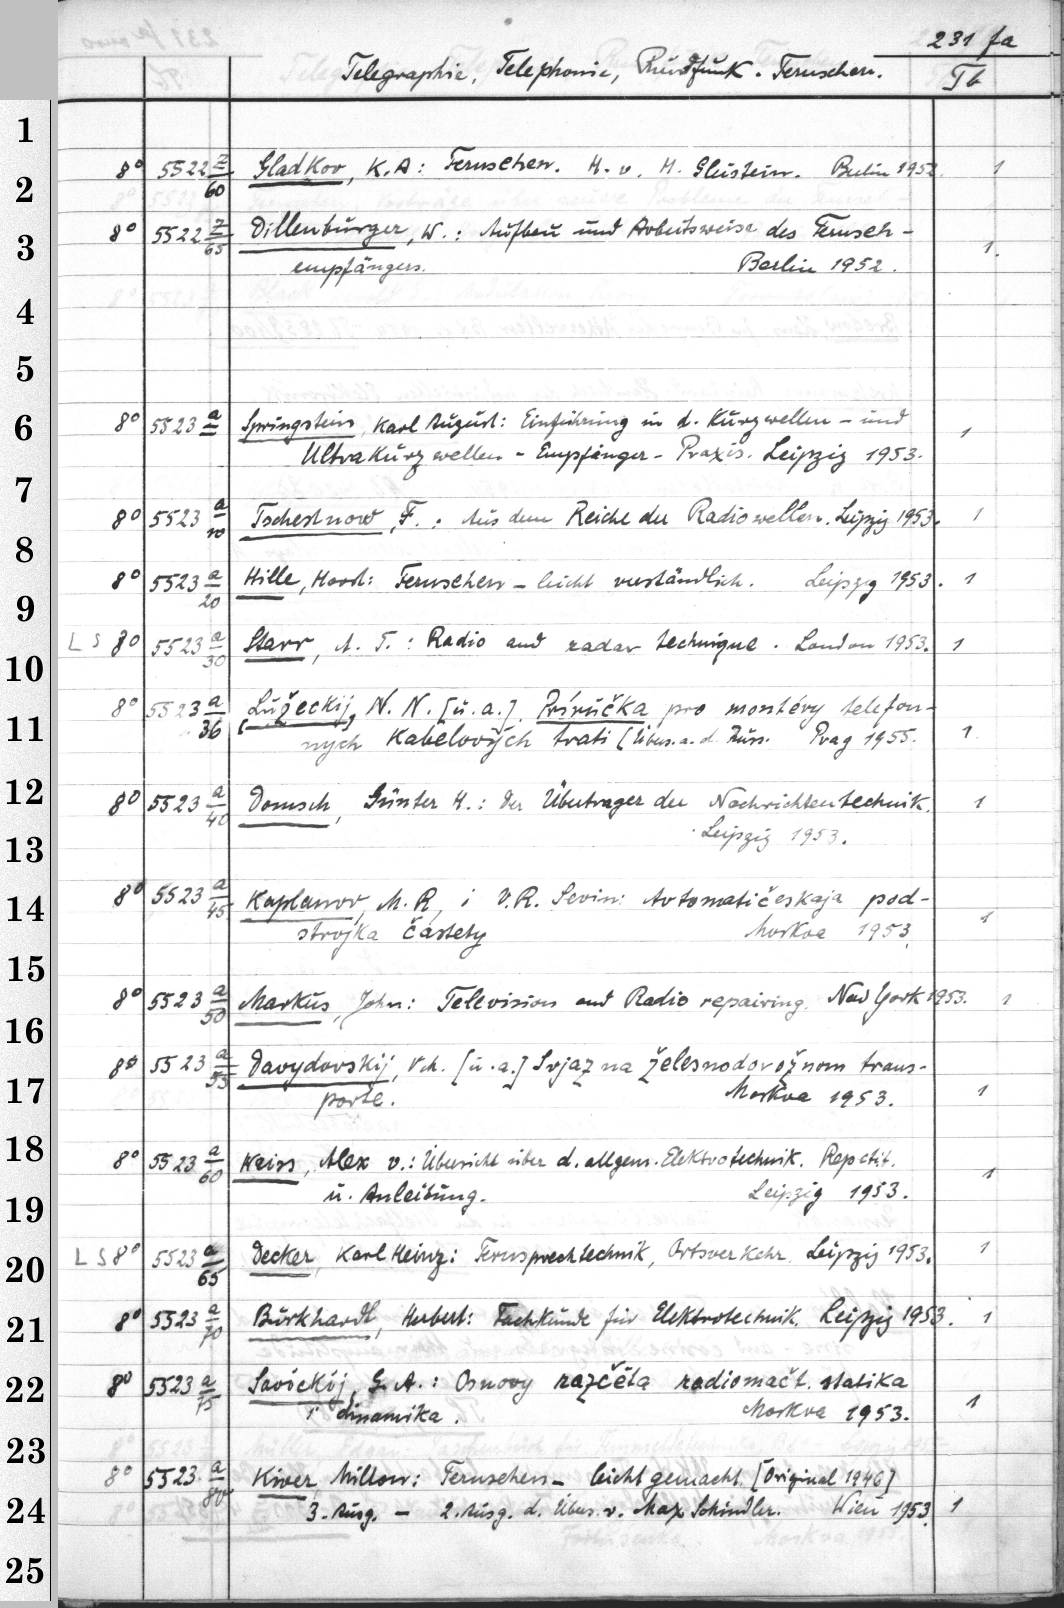 231 fa
Telegraphie, Telephonie, Rundfunk. Fernsehen.
Tb
1
2 8° 5522 z/60 Gladkov, K. A: Fernsehen. H. v. H. Berlin 1952. 1
3 8° 5522 z/65 Dillenburger, W.: Aufbau und Arbeitsweise des Fernseh-
empfängers. Berlin 1952. 1.
4
5
6 8° 5523 a Springstein, Karl August: Einführung in d. Kurzwellen- und
Ultrakurzwellen-Empfänger-Praxis. Leipzig 1953. 1
7
8° 5523 a/10 Tschestnow, F.: Aus dem Reiche der Radiowellen. Leipzig 1953. 1
8
8° 5523 a/20 Hille, Horst: Fernsehen - leicht verständlich. Leipzig 1953. 1
9
L S 8° 5523 a/30 Starr, A. T.: Radio and radar technique. London 1953. 1
10
8° 5523 a/36 [Lužeckij, N. N. [u.a.] Príručka pro montéry telefon-
11 nych kabelových trati [Übers. a. d. Russ. Prag 1955. 1
12 8° 5523 a/40 Domsch, Günter H.: Der Übertrager der Nachrichtentechnik.
Leipzig 1953. 1
13
14 8° 5523 a/45 Kaplanov, M. R, i V. R. Levin: Avtomatičeskaja pod-
strojka častety Moskva 1953. 1
15
8° 5523 a/50 Markus, John: Television and Radio repairing. New York 1953. 1
16
8° 5523 a/55 Davydovskij, V. [u.a.] Svjaz na železnodorožnom trans-
17 porte. Moskva 1953. 1
18 8° 5523 a/60 Weiss, Alex v.: Übersicht über d. allgem. Elektrotechnik. Repetit.
u. Anleitung. Leipzig 1953. 1
19
20 L S 8° 5523 a/65 Decker, Karl Heinz: Fernsprechtechnik, Ortsverkehr. Leipzig 1953. 1
21 8° 5523 a/70 Burkhardt, Herbert: Fachkunde für Elektrotechnik. Leipzig 1953. 1
22 8° 5523 a/75 Savickij, G. A.: Osnovy razčëta radiomačt. statika
i dinamika. Moskva 1953. 1
23
8° 5523 a/80 Kiver, Milton: Fernsehen - leicht gemacht [Original 1946]
24 3. Ausg. - 2. Ausg. d. Übers. v. Max Schindler. Wien 1953. 1
25